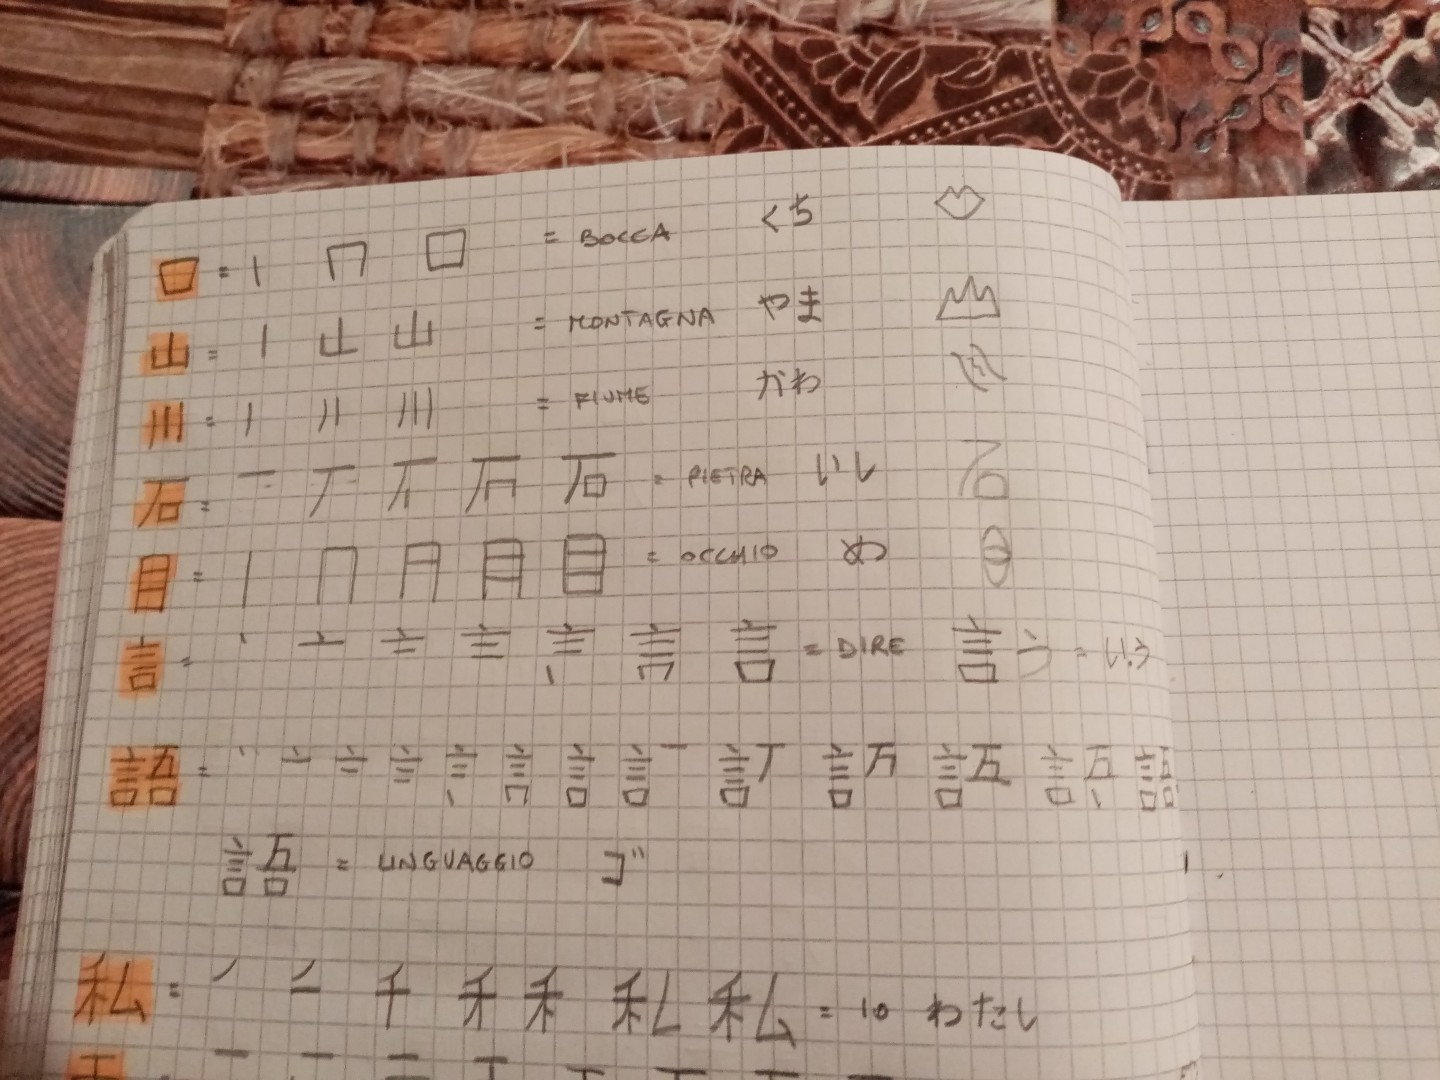 口 = 丨 冂 口 = BOCCA くち
山 = 丨 山 山 = MONTAGNA やま
川 = 丨 丨丨 川 = FIUME かわ
石 = 一 丆 石 = PIETRA いし
目 = 丨 冂 月 目 目 = OCCHIO め
言 = 丶 亠 言 = DIRE 言う = いう
語 = 丶 亠 言 語
語 = LINGUAGGIO ゴ
私 = ノ 二 千 禾 禾 私 私 = IO わたし